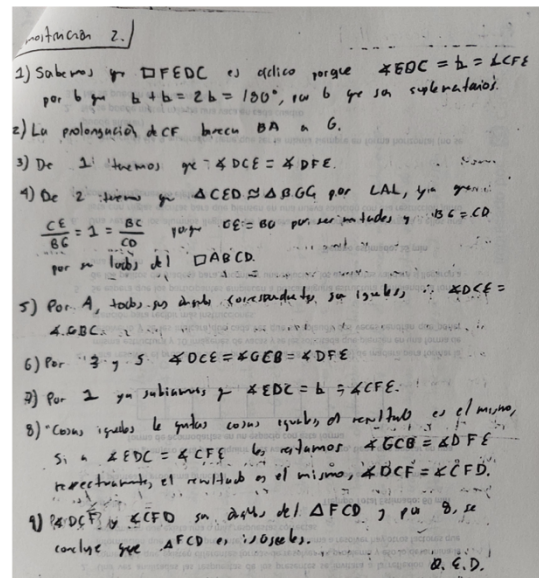 mostración 2.
1) Sabemos q □FEDC es cíclico porque ∡EDC = b = ∡CFE
por b b + b = 2b = 180°, por b que son suplementarios.
2) La prolongación de CF BA a G.
3) De 1 tenemos que ∡DCE = ∡DFE.
4) De 2 tenemos que △CED ≅ △BGC por LAL, ya que
CE/BG = 1 = BC/CD CE = BG por ser mitades y BC = CD
por ser lados del □ABCD.
5) Por 4, todos sus ángulos correspondientes son iguales ∴ ∡DCE =
∡GBC.
6) Por 3 y 5 ∡DCE = ∡GCB = ∡DFE
7) Por 1 ya sabíamos q ∡EDC = b = ∡CFE.
8) "Cosas iguales le quitas cosas iguales, el resultado es el mismo,
si a ∡EDC = ∡CFE les restamos ∡GCB = ∡DFE
respectivamente, el resultado es el mismo, ∡DCF = ∡CFD.
9) ∡DCF y ∡CFD son ángulos del △FCD y por 8, se
concluye que △FCD es isósceles.
Q.E.D.